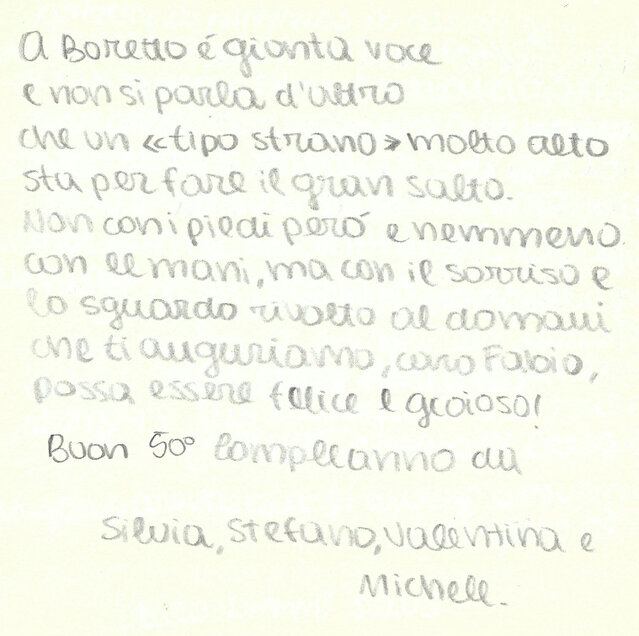 A Boretto é giunta voce
e non si parla d'altro
che un «tipo strano» molto alto
sta per fare il gran salto.
Non con i piedi però e nemmeno
con le mani, ma con il sorriso e
lo sguardo rivolto al domani
che ti auguriamo, caro Fabio,
possa essere felice e gioioso!
Buon 50° compleanno da
Silvia, Stefano, Valentina e
Michele.